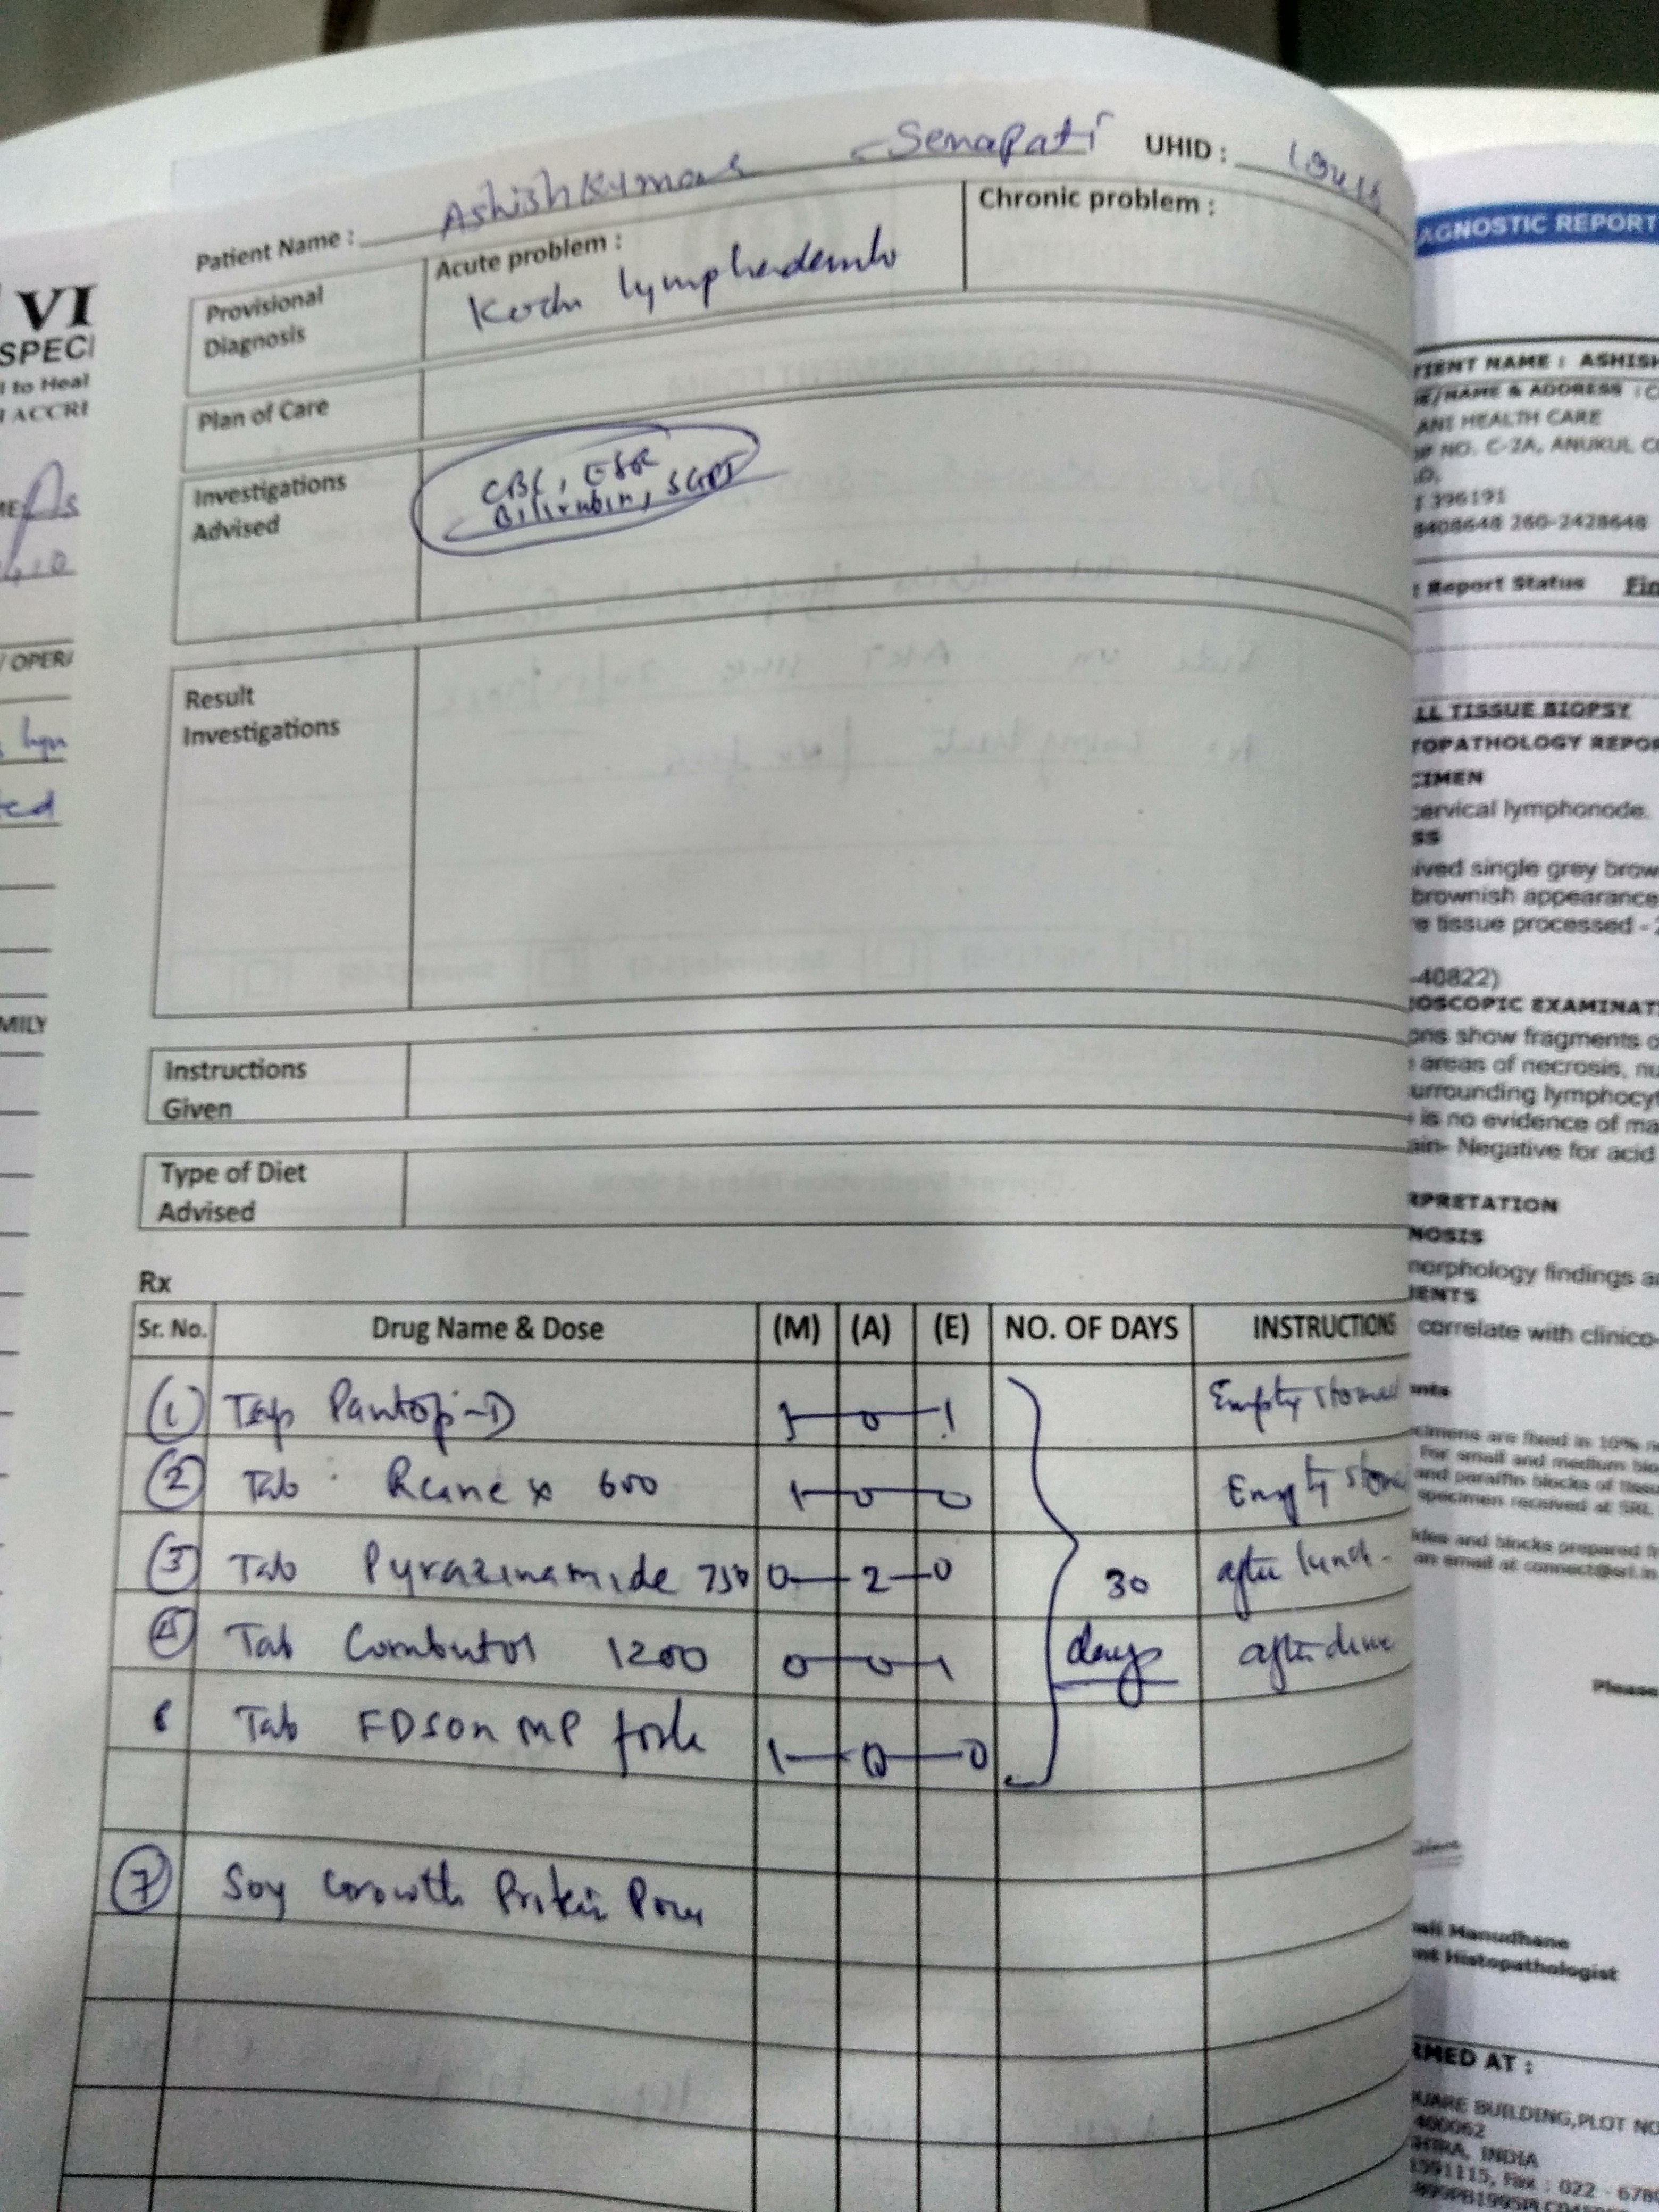 Patient Name : Ashish Kumar Senapati UHID :
Provisional Diagnosis
Acute problem :
Koch lymphadenitis
Chronic problem :
Plan of Care
Investigations Advised
CBC, ESR
Bilirubin, SGPT
Result Investigations
Instructions Given
Type of Diet Advised
Rx
Sr. No. Drug Name & Dose (M) (A) (E) NO. OF DAYS INSTRUCTIONS
(1) Tab Pantop-D 1 - 0 - 1 Empty
(2) Tab Rcinex 600 1 - 0 - 0 Empty
(3) Tab Pyrazinamide 750 0 - 2 - 0 30 after lunch
Tab Combutol 1200 0 - 0 - 1 days after
Tab FDSON MP forte 1 - 0 - 0
(7) Soy Growth Protein
VI
SPECI
l to Heal
ACCRI
ME:
/ OPER/
MILY
AGNOSTIC REPORT
TIENT NAME : ASHISH
E/NAME & ADDRESS : C
ANI HEALTH CARE
NO. C-2A, ANUKUL C
396191
8408648 260-2428648
Report Status Fin
LL TISSUE BIOPSY
TOPATHOLOGY REPOR
CIMEN
cervical lymphonode.
SS
ived single grey brow
brownish appearance
e tissue processed -
-40822)
OSCOPIC EXAMINAT
ons show fragments o
areas of necrosis, nu
urrounding lymphocyt
is no evidence of ma
ain- Negative for acid
RPRETATION
NOSIS
morphology findings a
MENTS
correlate with clinico-
cimens are fixed in 10% n
For small and medium bio
and paraffin blocks of tissu
specimen received at SRL
ides and blocks prepared fr
an email at connect@srl.in
Please
ali Manudhane
nt Histopathologist
RMED AT :
UARE BUILDING,PLOT NO
400062
INDIA
1591115, Fax : 022 - 678